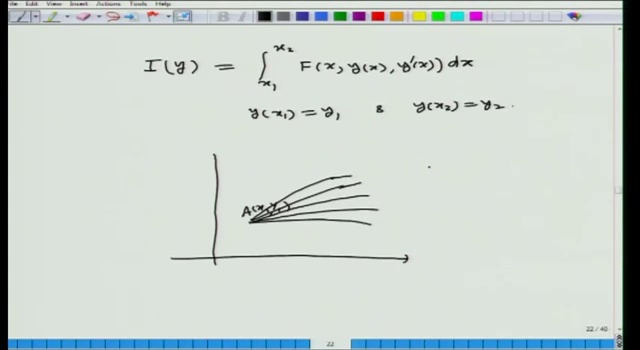 File Edit View Insert Actions Tools Help
I(y) = ∫_{x₁}^{x₂} F(x, y(x), y'(x)) dx
y(x₁) = y₁ & y(x₂) = y₂.
A(x₁, y₁)
22 / 40
22